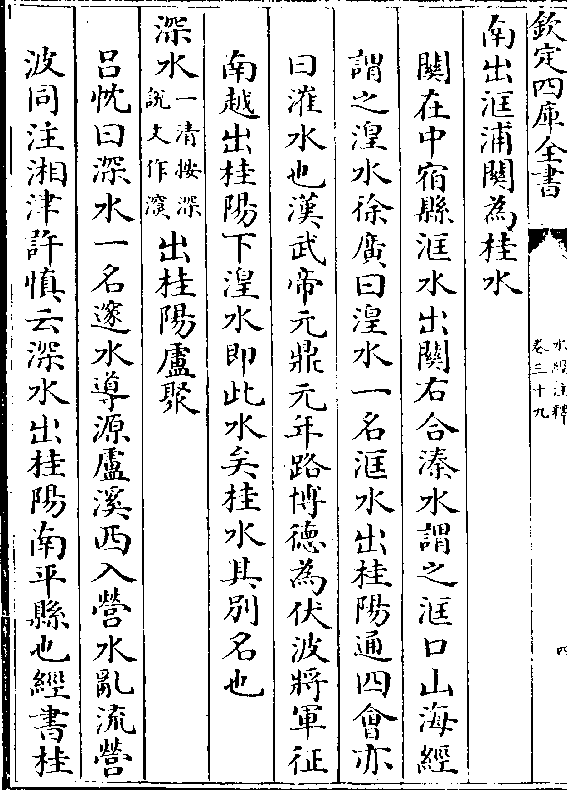 欽定四庫全書
水經注釋
卷三十九
四
南出洭浦關為桂水
關在中宿縣洭水出關右合溱水謂之洭口山海經
謂之湟水徐廣曰湟水一名洭水出桂陽通四會亦
曰漼水也漢武帝元鼎元年路博德為伏波將軍征
南越出桂陽下湟水即此水矣桂水其別名也
深水一清按深說文作𣾰出桂陽盧聚
呂忱曰深水一名邃水導源盧溪西入營水亂流營
波同注湘津許慎云深水出桂陽南平縣也經書桂